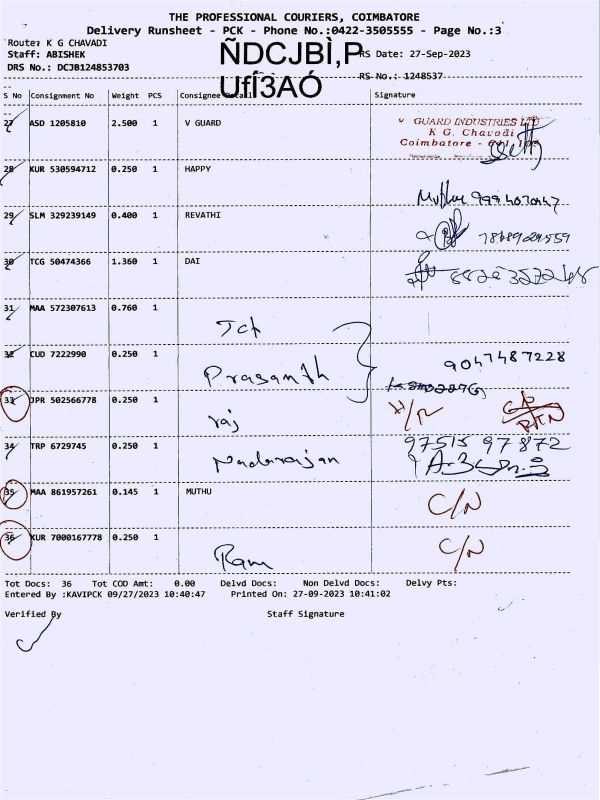 THE PROFESSIONAL COURIERS, COIMBATORE
Delivery Runsheet - PCK - Phone No.:0422-3505555 - Page No.:3
Route: K G CHAVADI
Staff: ABISHEK
DRS No.: DCJB124853703
ÑDCJBÌ,P
UfÍ3AÓ
RS Date: 27-Sep-2023
RS No.: 1248537
S No Consignment No Weight PCS Consignee Detail Signature
27 ASD 1205810 2.500 1 V GUARD
V GUARD INDUSTRIES LTD
K G. Chavadi
Coimbatore - 641 105
28 KUR 530594712 0.250 1 HAPPY
Muthu
29 SLM 329239149 0.400 1 REVATHI
30 TCG 50474366 1.360 1 DAI
31 MAA 572307613 0.760 1
Tct
32 CUD 7222990 0.250 1 Prasanth 9047487228
33 JPR 502566778 0.250 1 raj
34 TRP 6729745 0.250 1 Nadarajan 97515 97872
35 MAA 861957261 0.145 1 MUTHU C/N
36 KUR 7000167778 0.250 1 Ram C/N
Tot Docs: 36 Tot COD Amt: 0.00 Delvd Docs: Non Delvd Docs: Delvy Pts:
Entered By :KAVIPCK 09/27/2023 10:40:47 Printed On: 27-09-2023 10:41:02
Verified By Staff Signature